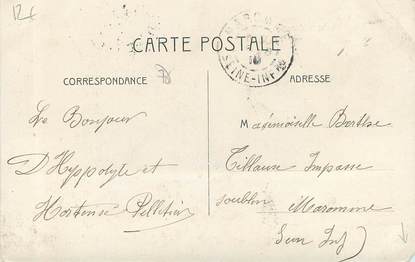 CARTE POSTALE
SEINE-INFRE
CORRESPONDANCE
ADRESSE
Le Bonjour
D'Hyppolyte et
Hortense Pelletier
Mademoiselle Berthe
Tillaux Impasse
Maromme
Sein Inf)